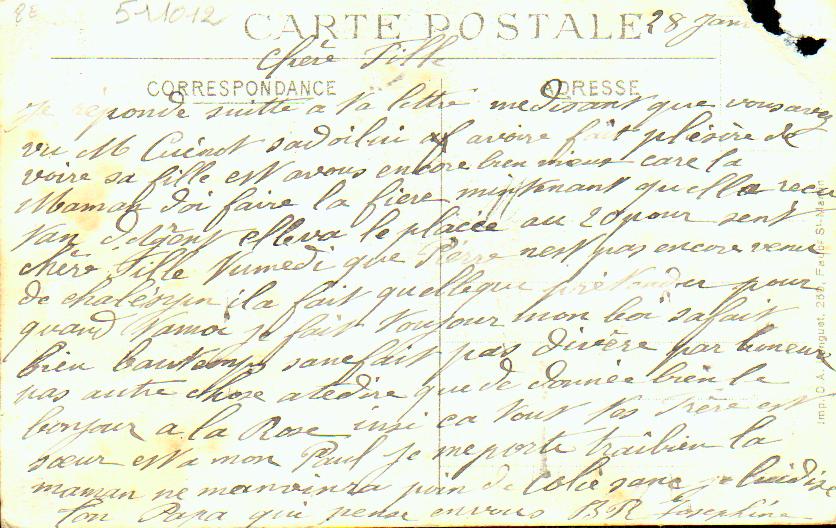 51012
CARTE POSTALE 28 Jan
chère Fille
CORRESPONDANCE ADRESSE
Je réponde suitte a ta lettre me disant que vous avez
vu M Cuénot sadoilui avoire fait plésire de
voire sa fille est avous encore bien mieus care la
Maman doi faire la fiere mintenant quelle a recu
tan d'Argent elleva le placée au 20 pour sent
chère Fille tumedi que Pierre nest pas encore venu
de ila fait quelleque pour
quand tamoi je fait toujour mon boi safait
bien bautemp sanefait pas divère par boneure
pas autre chose atedire que de donnée bien le
bonjour a la Rose insi ca tout tes Frère est
sœur est a mon Paul je me porte traibien la
maman ne manvinra poin de colie sanc je luidire
Ton Papa qui pense envous BR Josephine
Imp. D.A. Longuet, 250, Faubg St-Martin